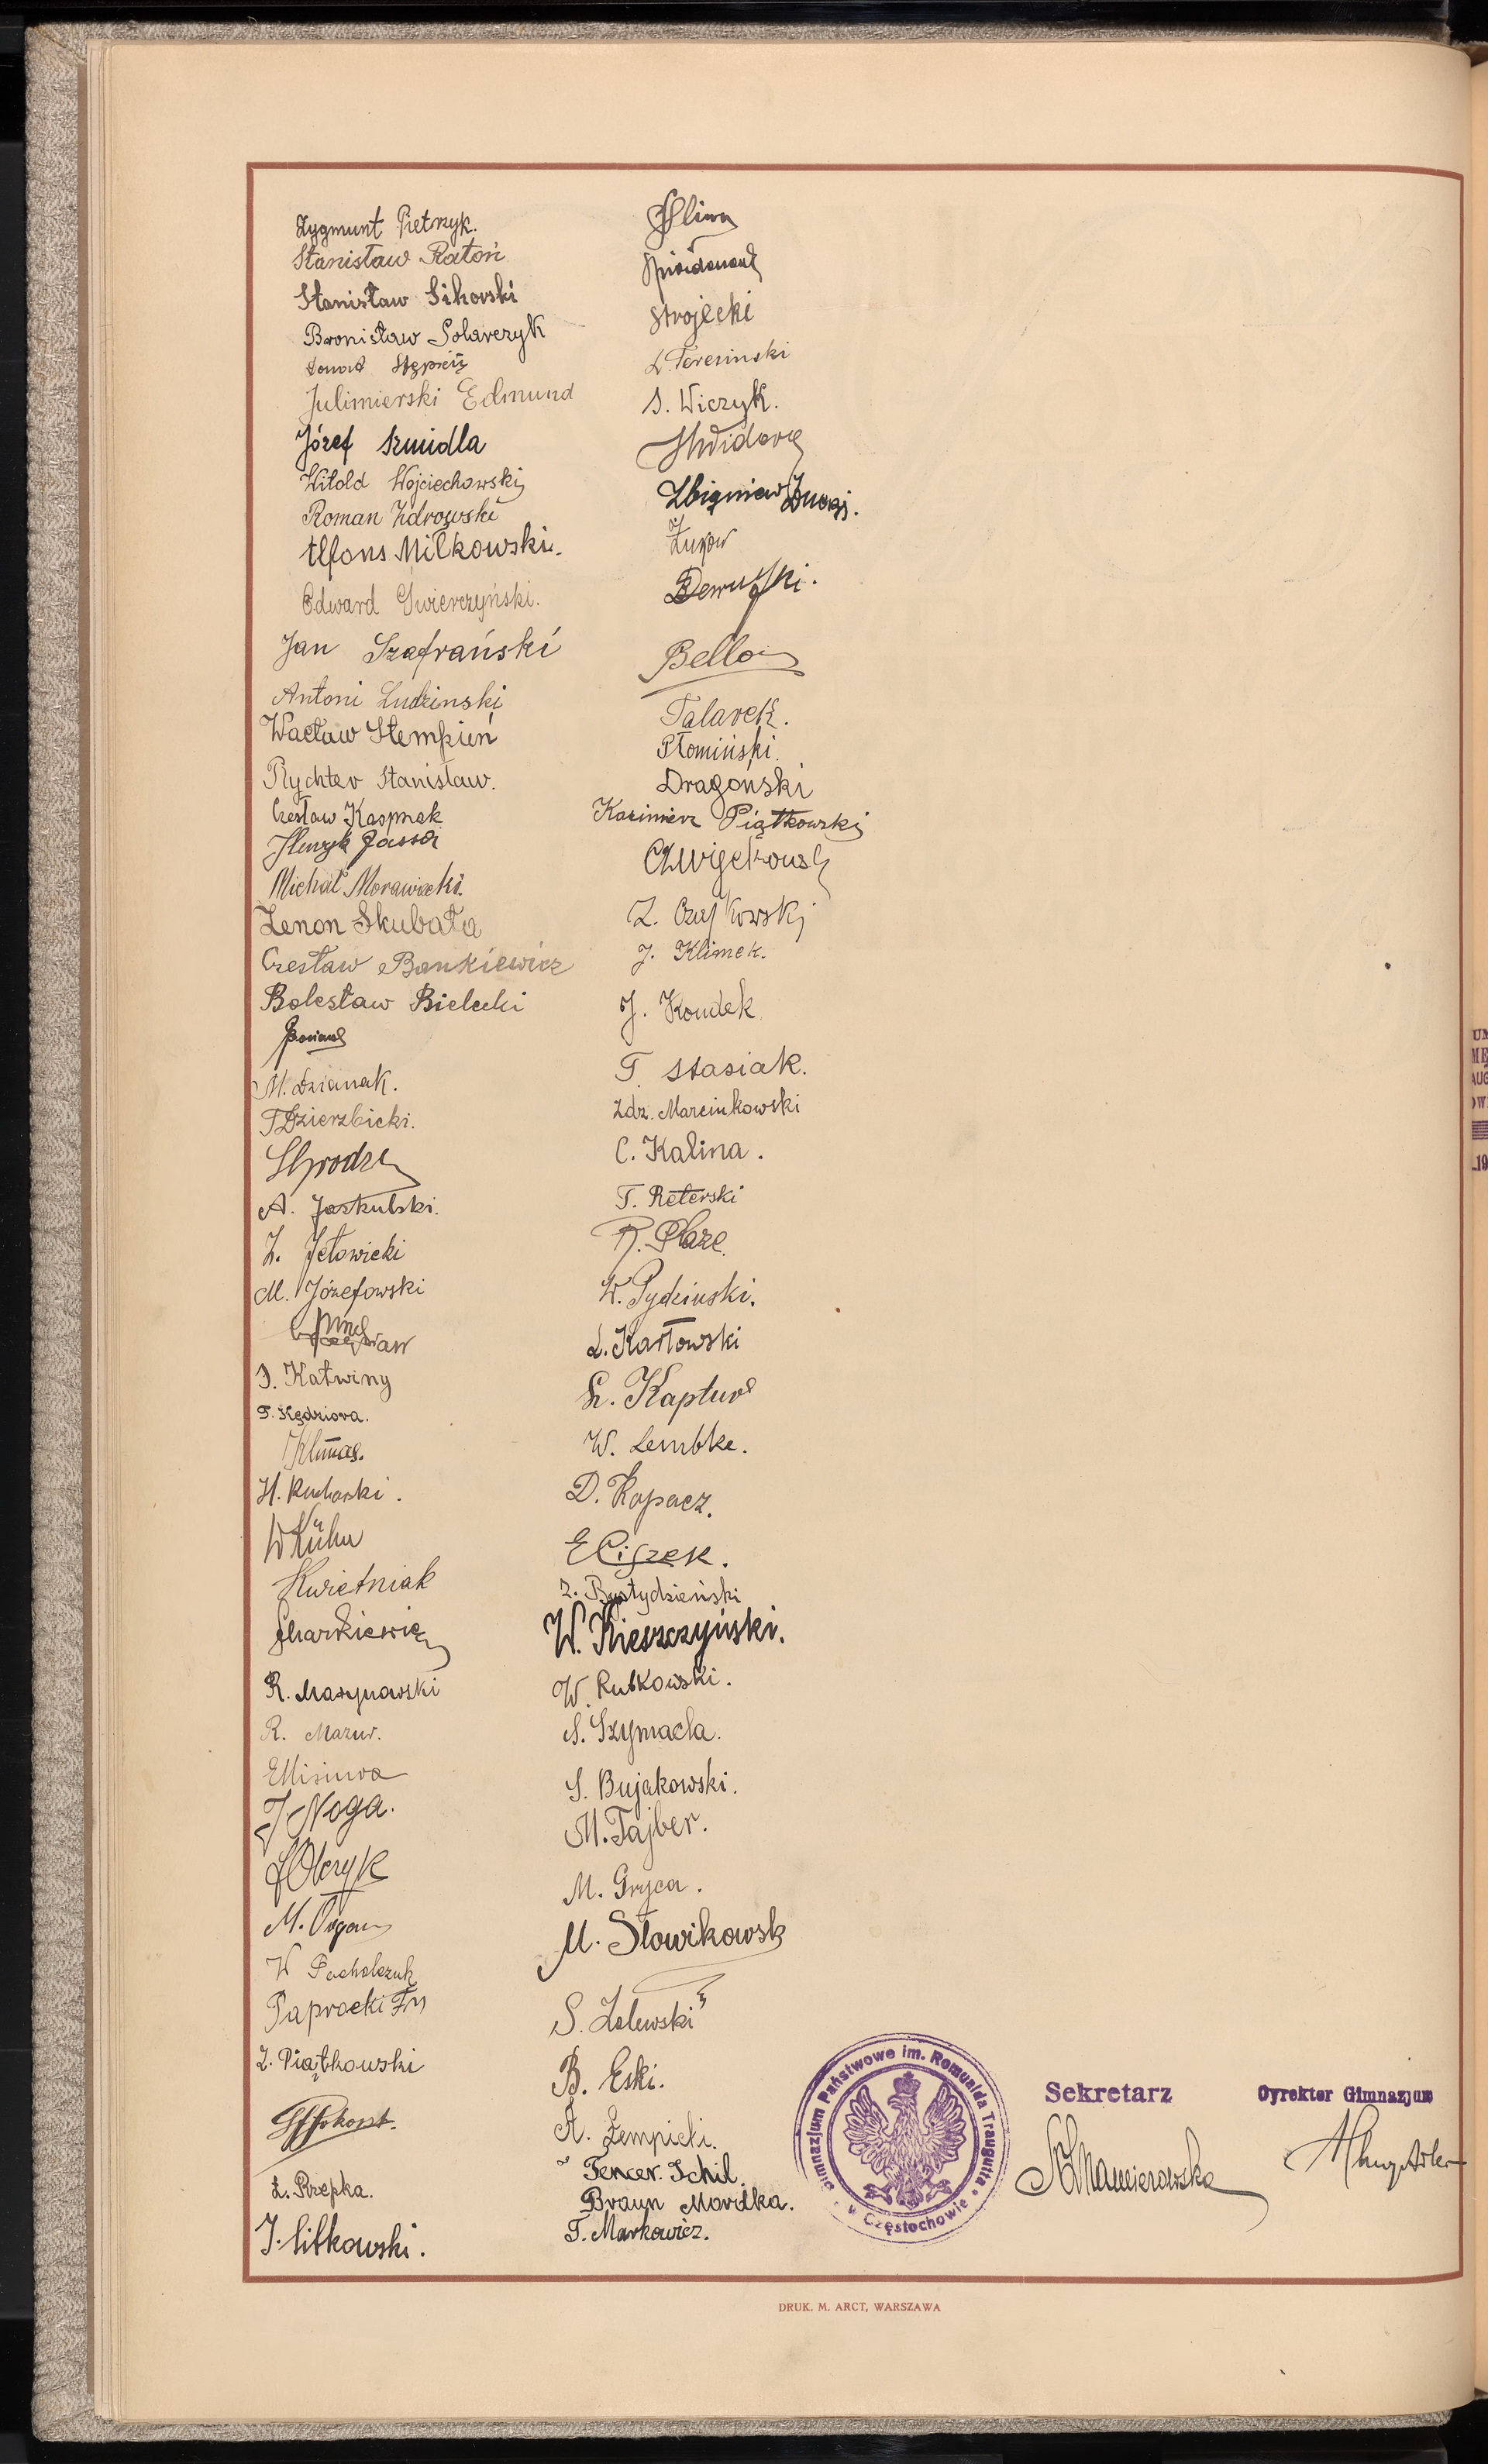 Zygmunt Pietrzyk.
Stanisław Ratoń
Stanisław Sikorski
Bronisław Solarczyk
Stępień
Julimierski Edmund
Józef Szmidla
Witold Wojciechowski
Roman Zdrowski
Alfons Miłkowski.
Edward Świerczyński.
Jan Szafrański
Antoni Ludzinski
Wacław Stempień
Rychter Stanisław.
Czesław Kasprzak
Henryk Jassa
Michał Morawiecki.
Zenon Skubała
Czesław Bankiewicz
Bolesław Bielecki
M. Dzianak.
T Dzierzbicki.
A. Jaskulski.
Z. Jełowicki
M. Józefowski
J. Kałwiny
T. Kędziora.
Klimas.
H. Kucharski.
W Kühn
Kwietniak
Charkiewicz
R. Marynowski
R. Mazur.
E Misiura
J Noga.
J Olczyk
M. Organ
W Pacholczuk
Paprocki Fr
Z. Piątkowski
Z. Rzepka.
J. Sitkowski.
Strojecki
Z. Teresinski
S. Wiczyk.
Zbigniew
Żurow
Bello
Talarek.
Płomiński.
Dragoński
Kazimierz Piątkowski
Ćwiękowsk
Z. Czajkowski
J. Klimek.
J. Koudek
T. Stasiak.
Zdz. Marcinkowski
C. Kalina.
T. Reterski
R. Płaze
W. Pydziński.
L. Karłowski
H. Kaptur
W. Lembke.
D. Kopacz.
E Ciszek.
Z. Bystydzieński
W. Kieszczyński.
W. Rutkowski.
S. Szymacla.
S. Bujakowski.
M. Tajber.
M. Gryca.
M. Słowikowski
S. Zalewski
B. Eski.
A. Łempicki.
Fencer. Schil.
Braun Mordka.
T. Markowicz.
Gimnazjum Państwowe im. Romualda Traugutta
w Częstochowie
Sekretarz
Dyrektor Gimnazjum
DRUK. M. ARCT, WARSZAWA